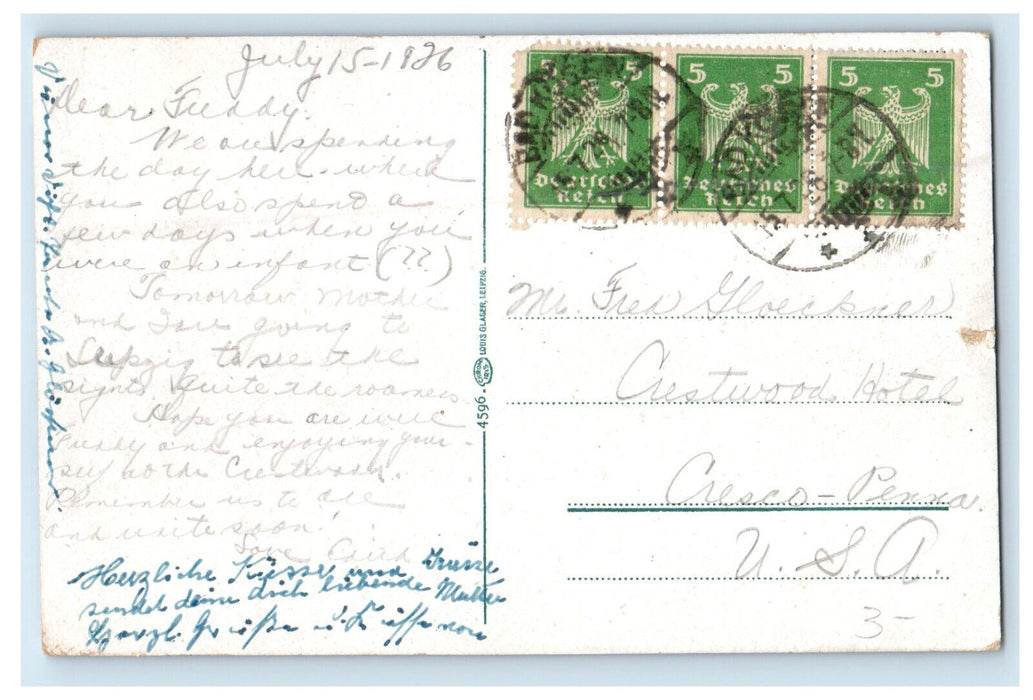 July 15-1926
Dear Freddy.
We are spending
the day here where
you also spent a
few days when you
were an infant (??)
Tomorrow Mother
and I are going to
Leipzig to see the
sights. Quite the roamers.
Hope you are well
Freddy and enjoying your-
self at the Crestwood.
Remember us to all
and write soon!
Love
Herzliche Küsse und Grüsse
sendet deine dich liebende Mutter
Herzl. Grüße u. Küsse von
4596 - LOUIS GLASER, LEIPZIG.
5 5 5 5 5 5
Deutsches Reich
Deutsches Reich
Deutsches Reich
Mr. Fred Gloeckner
Crestwood Hotel
Cresco - Penna.
U. S. A.
3-